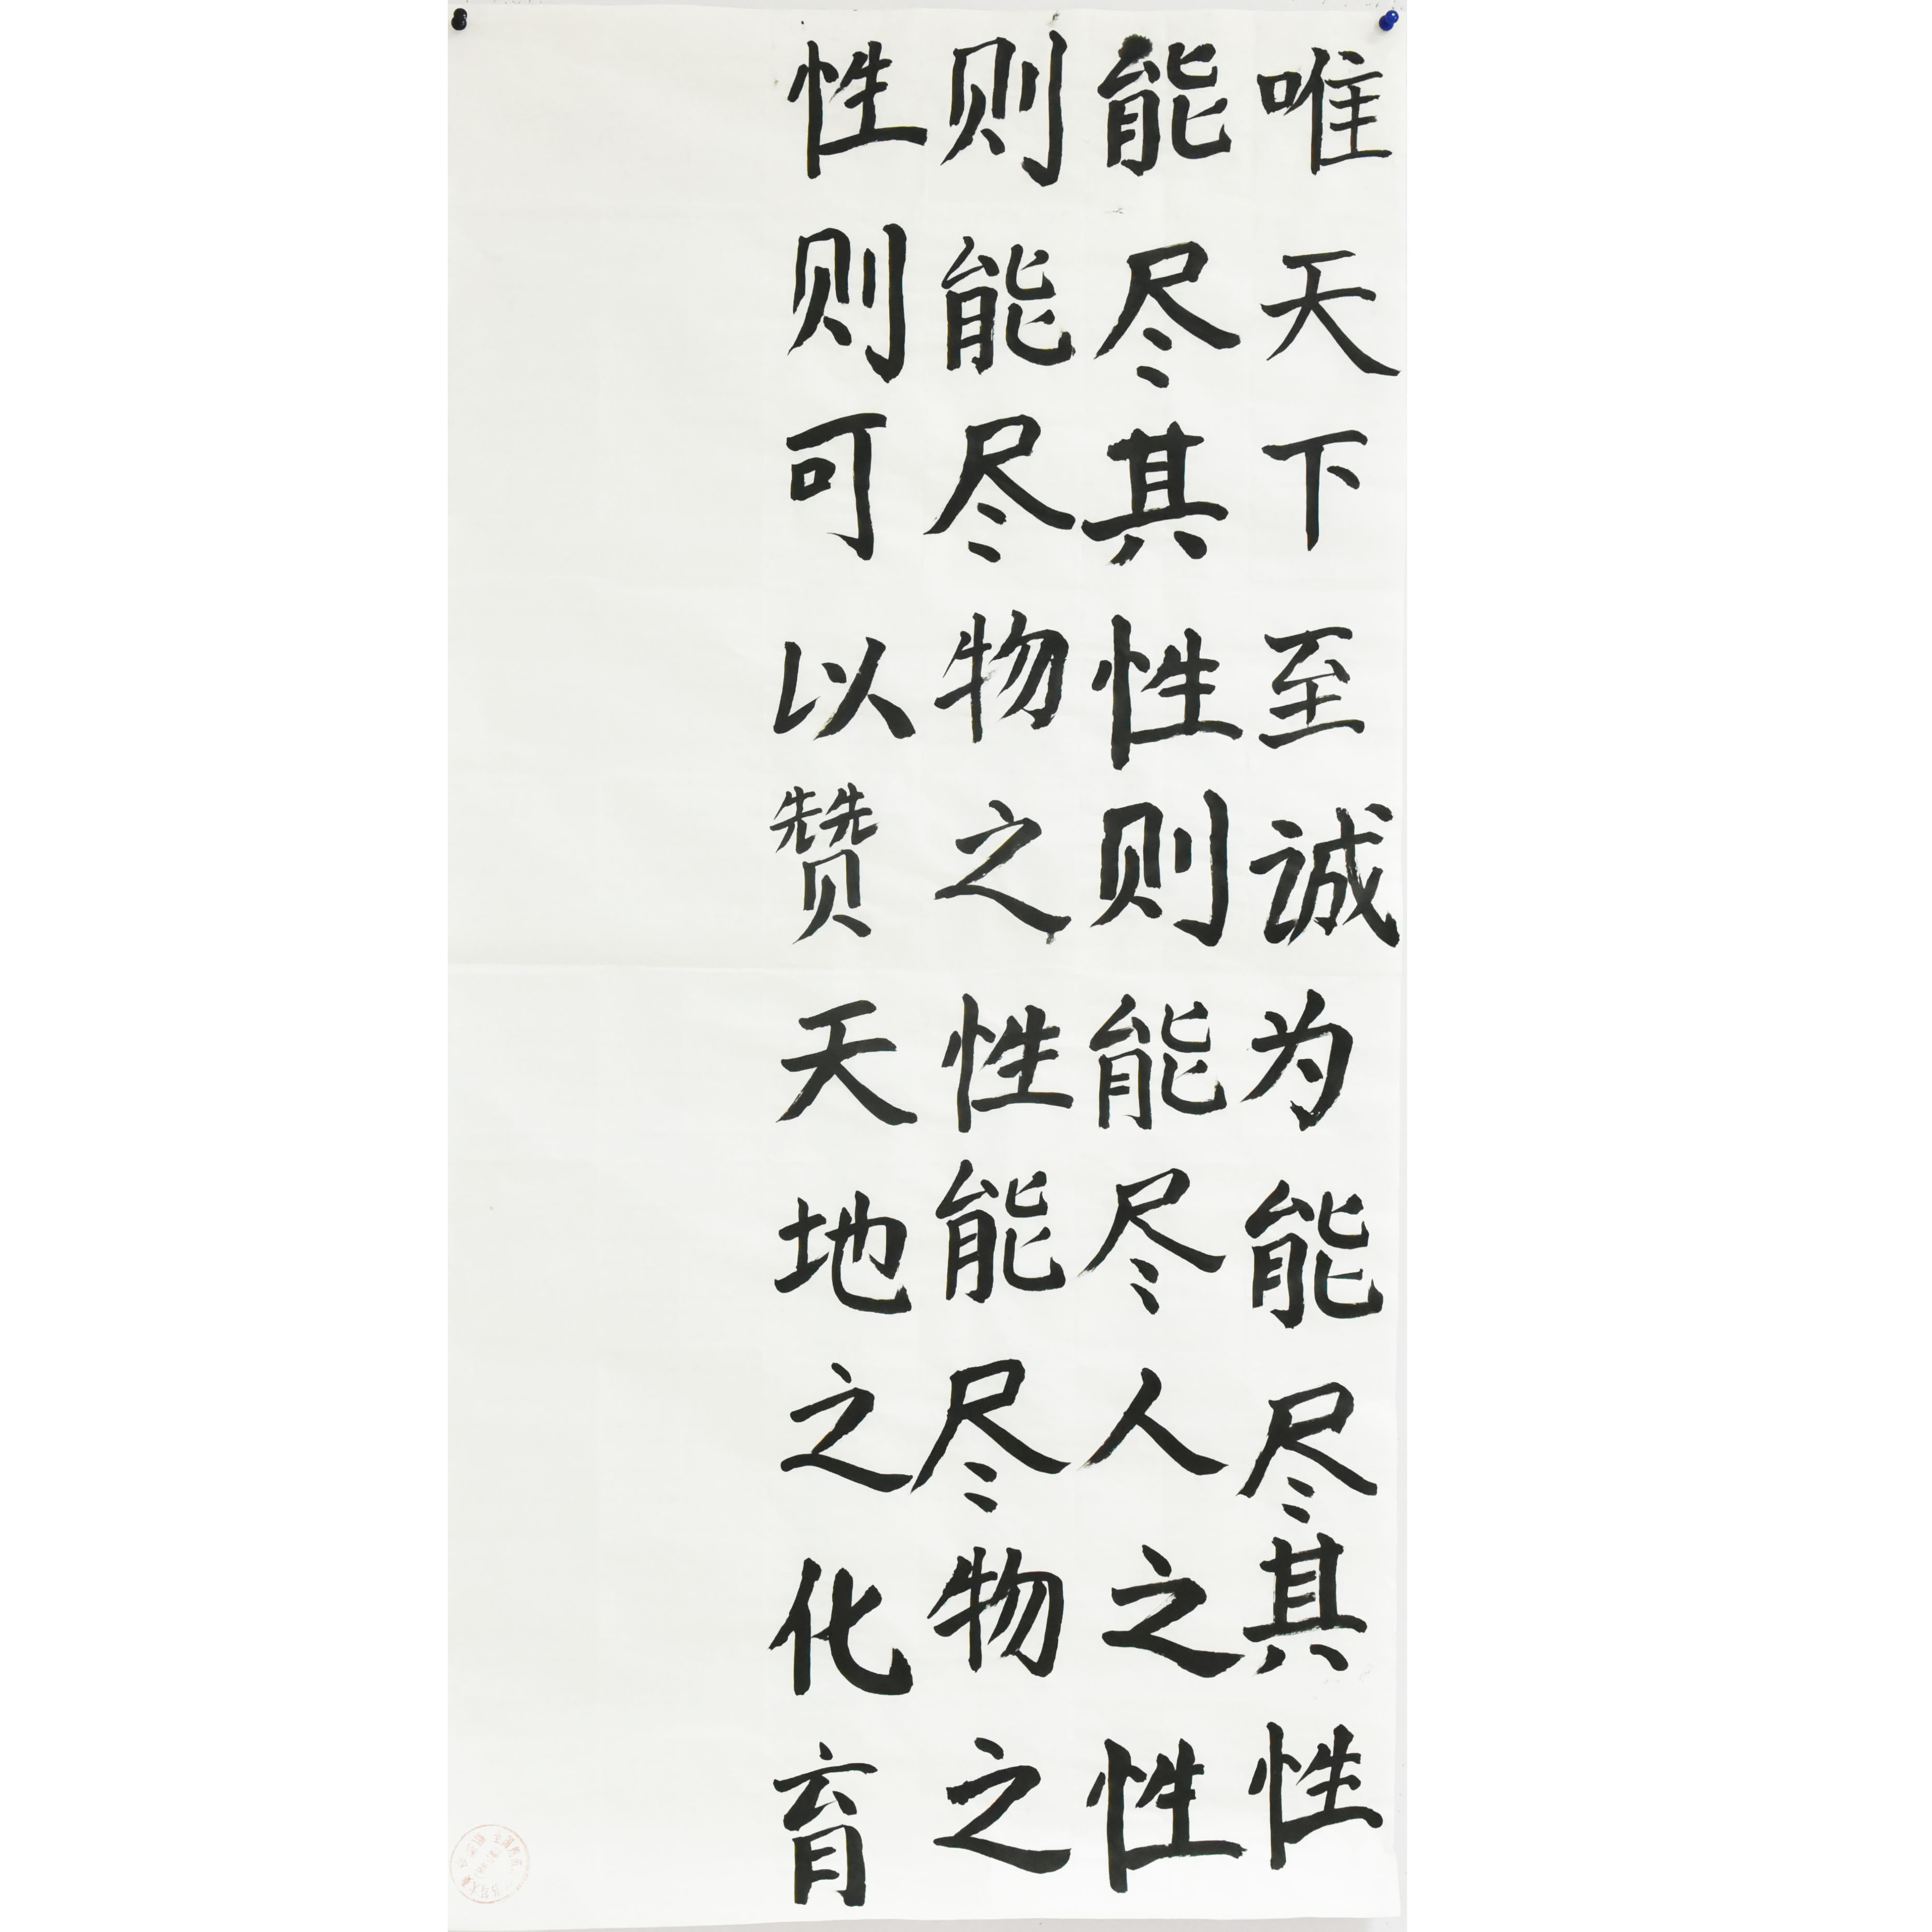 唯天下至诚为能尽其性
能尽其性则能尽人之性
则能尽物之性能尽物之
性则可以赞天地之化育